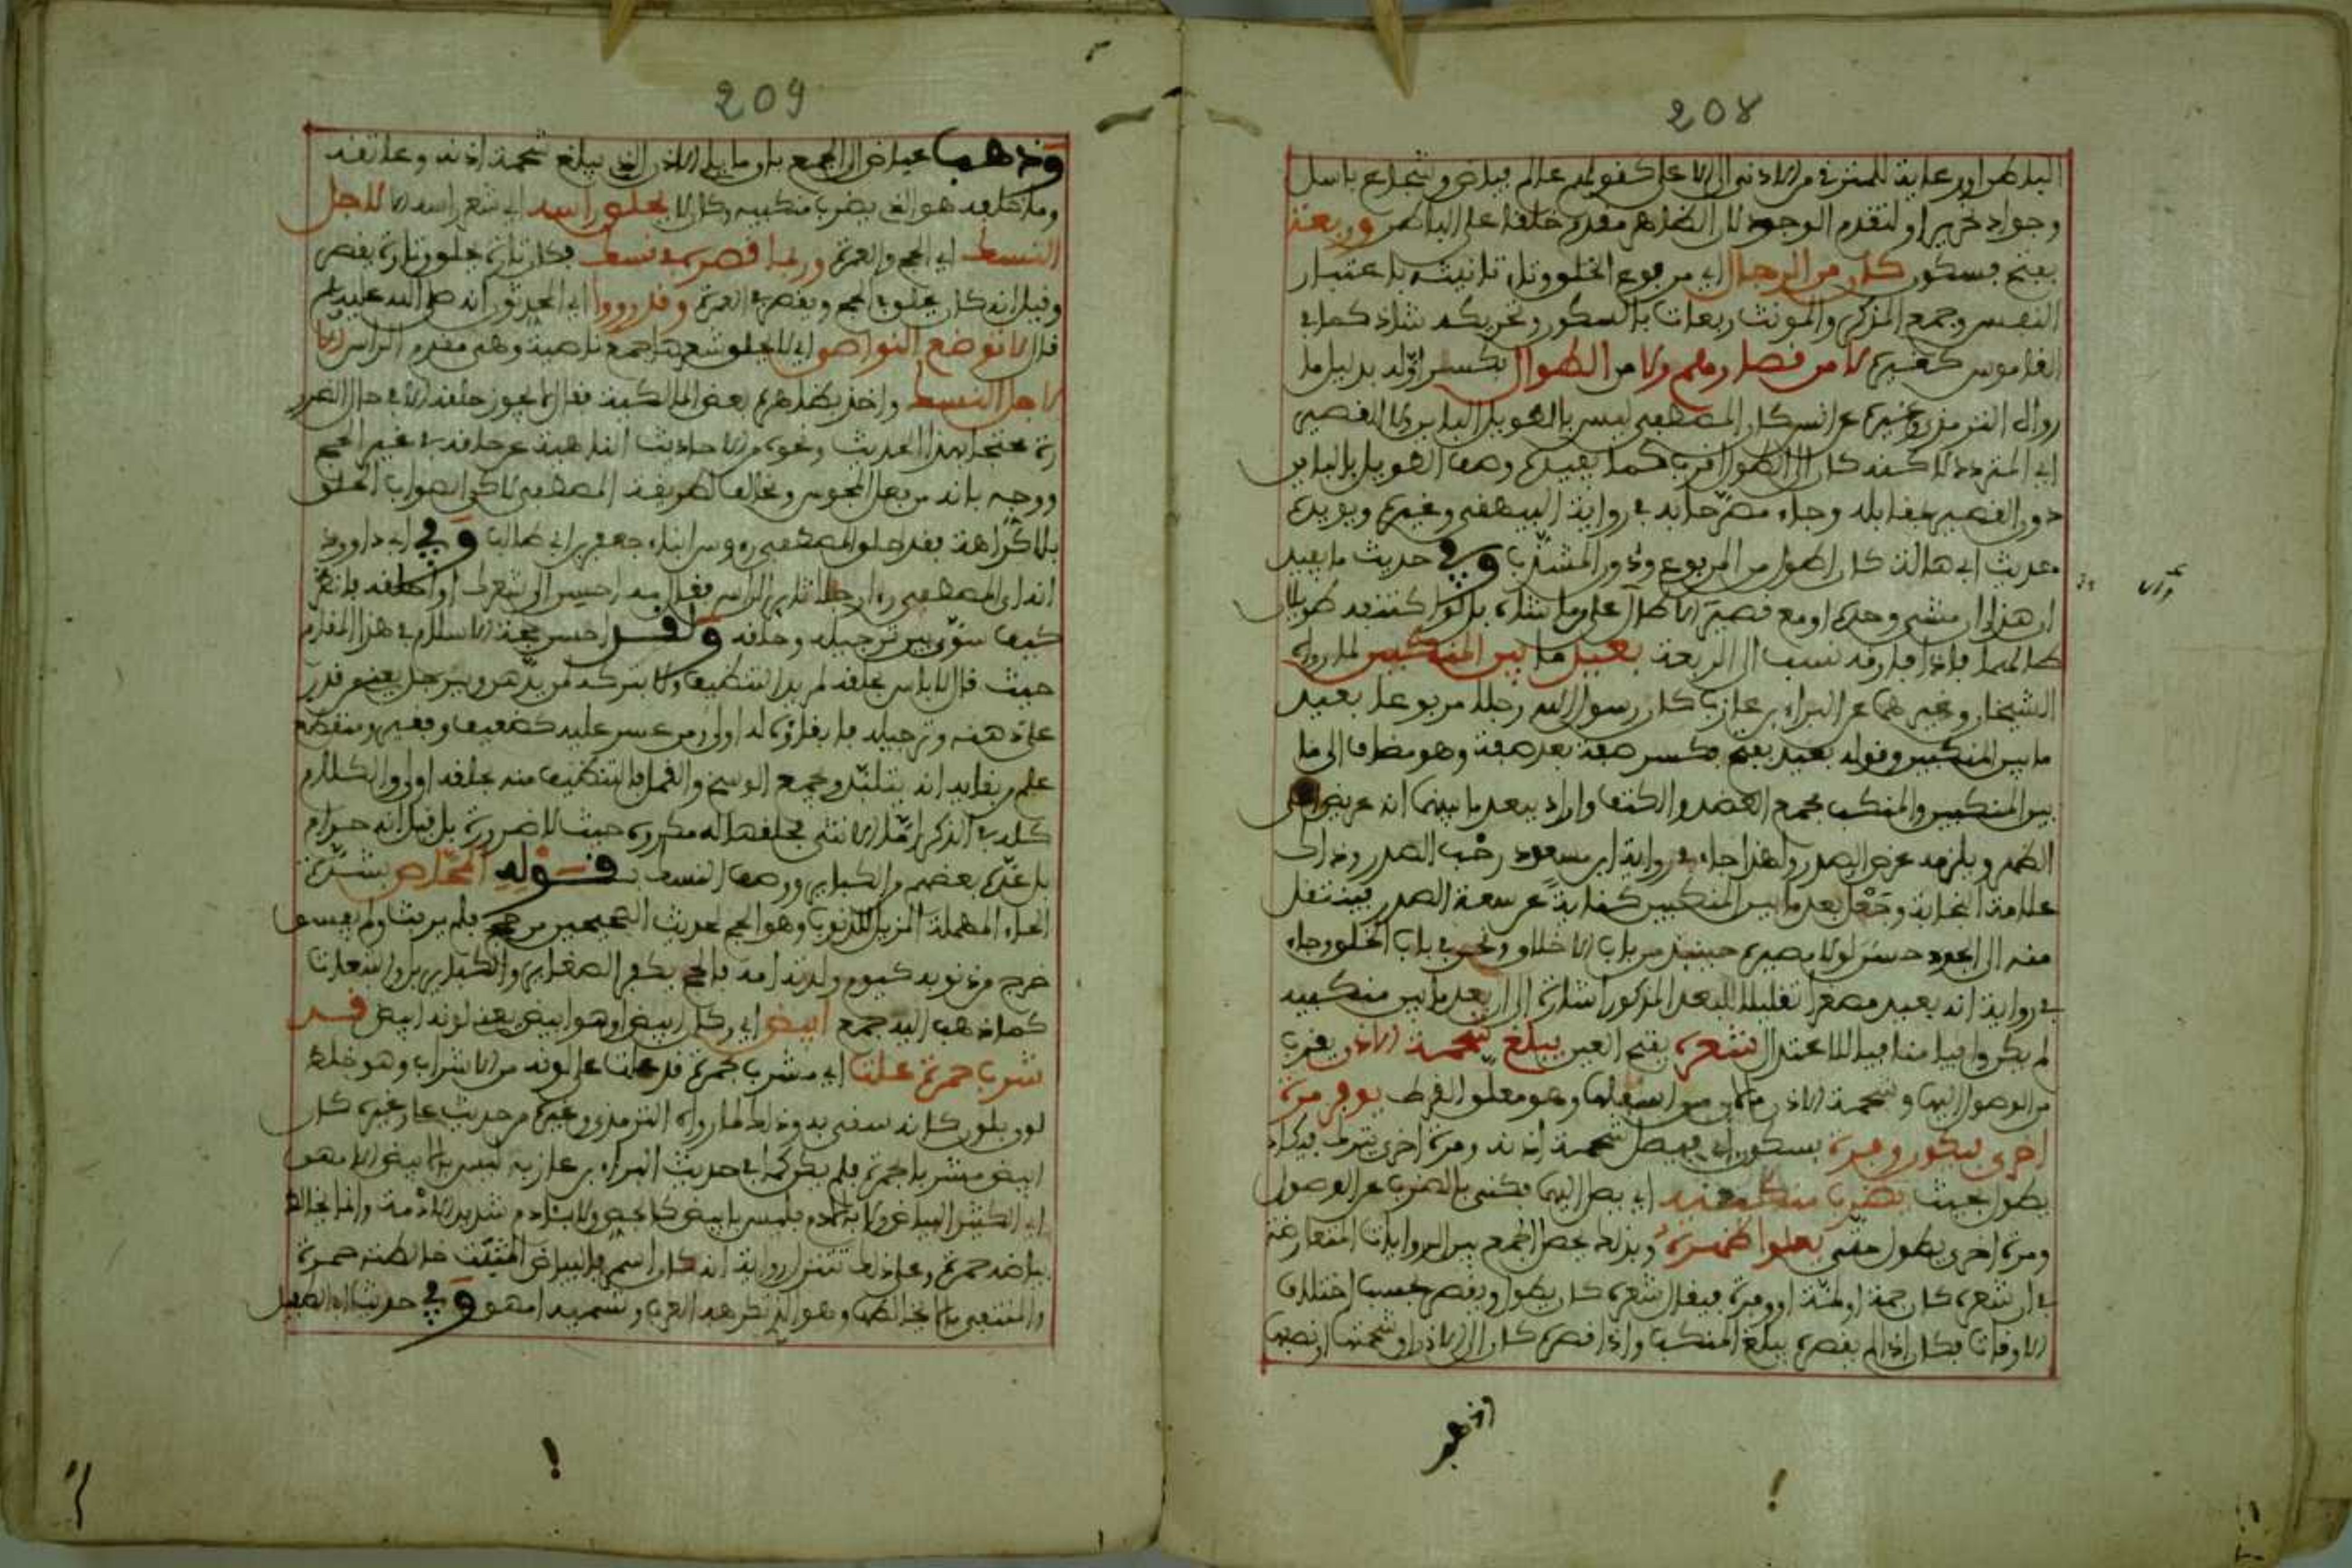 208
الباطن او رعاية للمترقي من الادنى الى الاعلى كقولهم عالم فياض وشجاع باسل
وجواد نحرير او لتقدم الوجود لان الظاهر مقدم خلقا على الباطن وربعة
بفتح فسكون كان من الرجال اي مربوع الخلق وتانيثه باعتبار
النفس وجمع المذكر والمونث ربعات بالسكون وتحريكه شاذ كما في
القاموس كغيره لا من قصارهم ولا من الطوال بكسر اوله بدليل ما
رواه الترمذي وغيره عن انس كان المصطفى ليس بالطويل الباين ولا القصير
اي المتردد لاكنه كان الى الطول اقرب كما يفيده وصف الطويل بالباين
دون القصير بمقابله وجاء مصرحا به في رواية البيهقي وغيره ويويده
حديث ابي هالة كان اطول من المربوع ودون المشذب وفي حديث ما يفيد
ان هذا ان مشى وحده او مع قصير الا طال على ما شاه بل لو اكتنفه طويلان
طالهما فاذا فارقه نسب الى الربعة بعيد ما بين المنكبين لما رواه
الشيخان وغيرهما عن البراء بن عازب كان رسول الله رجلا مربوعا بعيد
ما بين المنكبين وقوله بعيد بفتح فكسر صفة بعد صفة وهو مضاف الى ما
بين المنكبين والمنكب مجمع العضد والكتف واراد ببعد ما بينهما انه عريض اعلى
الظهر ويلزمه عرض الصدر ولهذا جاء في رواية ابن سعد رحب الصدر وذلك
علامة النجابة وجعل بعد ما بين المنكبين كناية عن سعة الصدر فينتقل
منه الى الجود حسن لولا مصيره حينئذ من باب الاخلاق ونحن في باب الخلق وجاء
في رواية انه بعيد مصغرا تقليلا للبعد المذكور اشارة الى ان بعد ما بين منكبيه
لم يكن وافيا منافيا للاعتدال شعره بفتح العين يبلغ شحمة الاذن يقرب
من الوصول اليها وشحمة الاذن ما لان من اسفلها وهو معلق القرط يوفر مرة
اخرى فيكون وفرة بسكون اي فيصل شحمة اذنه ومرة اخرى يترك فيكاد
يطول بحيث يضرب منكبيه اي يصل اليهما فكنى بالضرب عن الوصول
ومرة اخرى يطول حتى يعلوا ظهره وبذلك يحصل الجمع بين الروايات المتعارضة
في ان شعره كان جمة او لمة او وفرة فيقال شعره كان يطول ويقصر بحسب اختلاف
الاوقات فكان اذا لم يقصره يبلغ المنكب واذا قصره كان الى الاذن او شحمتها او نصفها
209
وذهب عياض الى الجمع بان ما يلي الاذن الذي يبلغ شحمة اذنه وعاتقه
وما خلفه هو الذي يضرب منكبيه وكان لا يحلق راسه اي شعر راسه الا لاجل
النسك اي الحج والعمرة وربما قصره في نسك فكان تارة يحلق وتارة يقصر
وقيل انه كان يحلق في الحج ويقصر في العمرة وقد رووا اي المحدثون انه صلى الله عليه وسلم
قال لا توضع النواصي اي لا يحلق شعرها جمع ناصية وهي مقدم الراس الا
لاجل النسك واخذ بظاهره بعض المالكية فقال لا يجوز حلقه الا في حال الضرورة
محتجا بهذا الحديث ونحوه من الاحاديث الناهية عن حلقه في غير الحج
ووجه بانه من فعل المجوس ومخالف لطريقة المصطفى لاكن الصواب الحلق
بلا كراهة فقد حلق المصطفى رءوس ابناء جعفر بن ابي طالب وفي ابي داوود
كيف سوى بين ترجيله وحلقه ولقد احسن حجة الاسلام في هذا المقام
حيث قال لا باس بحلقه لمريد التنظيف ولا بتركه لمن يدهن ويرجل يعني من قدر
على دهنه وترجيله فابقاؤه له اولى ومن عسر عليه كضعيف وفقير ومنقطع
علم من بقايه انه يتلبد ويجمع الوسخ والقمل فالتنظيف منه بحلقه اولى والكلام
كله في الذكر اما الانثى فحلقها له مكروه حيث لا ضرورة بل قيل انه حرام
بل عده بعضهم من الكباير ووصف النسك بقوله المحاص بتشديد
الحاء المهملة المزيل للذنوب وهو الحج لحديث الصحيحين من حج فلم يرفث ولم يفسق
خرج من ذنوبه كيوم ولدته امه فالحج يكفر الصغاير والكباير بل والتبعات
كما ذهب اليه جمع ابيض اي وكان ابيض او هو ابيض يعني لونه ابيض قد
شرب حمرة علت اي مشرب بحمرة قد علت على لونه من الاشراب وهو خلط
لون بلون كانه سقي به وذلك لما رواه الترمذي وغيره من حديث علي وغيره كان
ابيض مشربا بحمرة فلم يكن كما في حديث البراء بن عازب ليس بالابيض الامهق
والمنتفي ما لا يخالطها وهو الذي تكرهه العرب وتسميه امهق وفي حديث ابي الطفيل